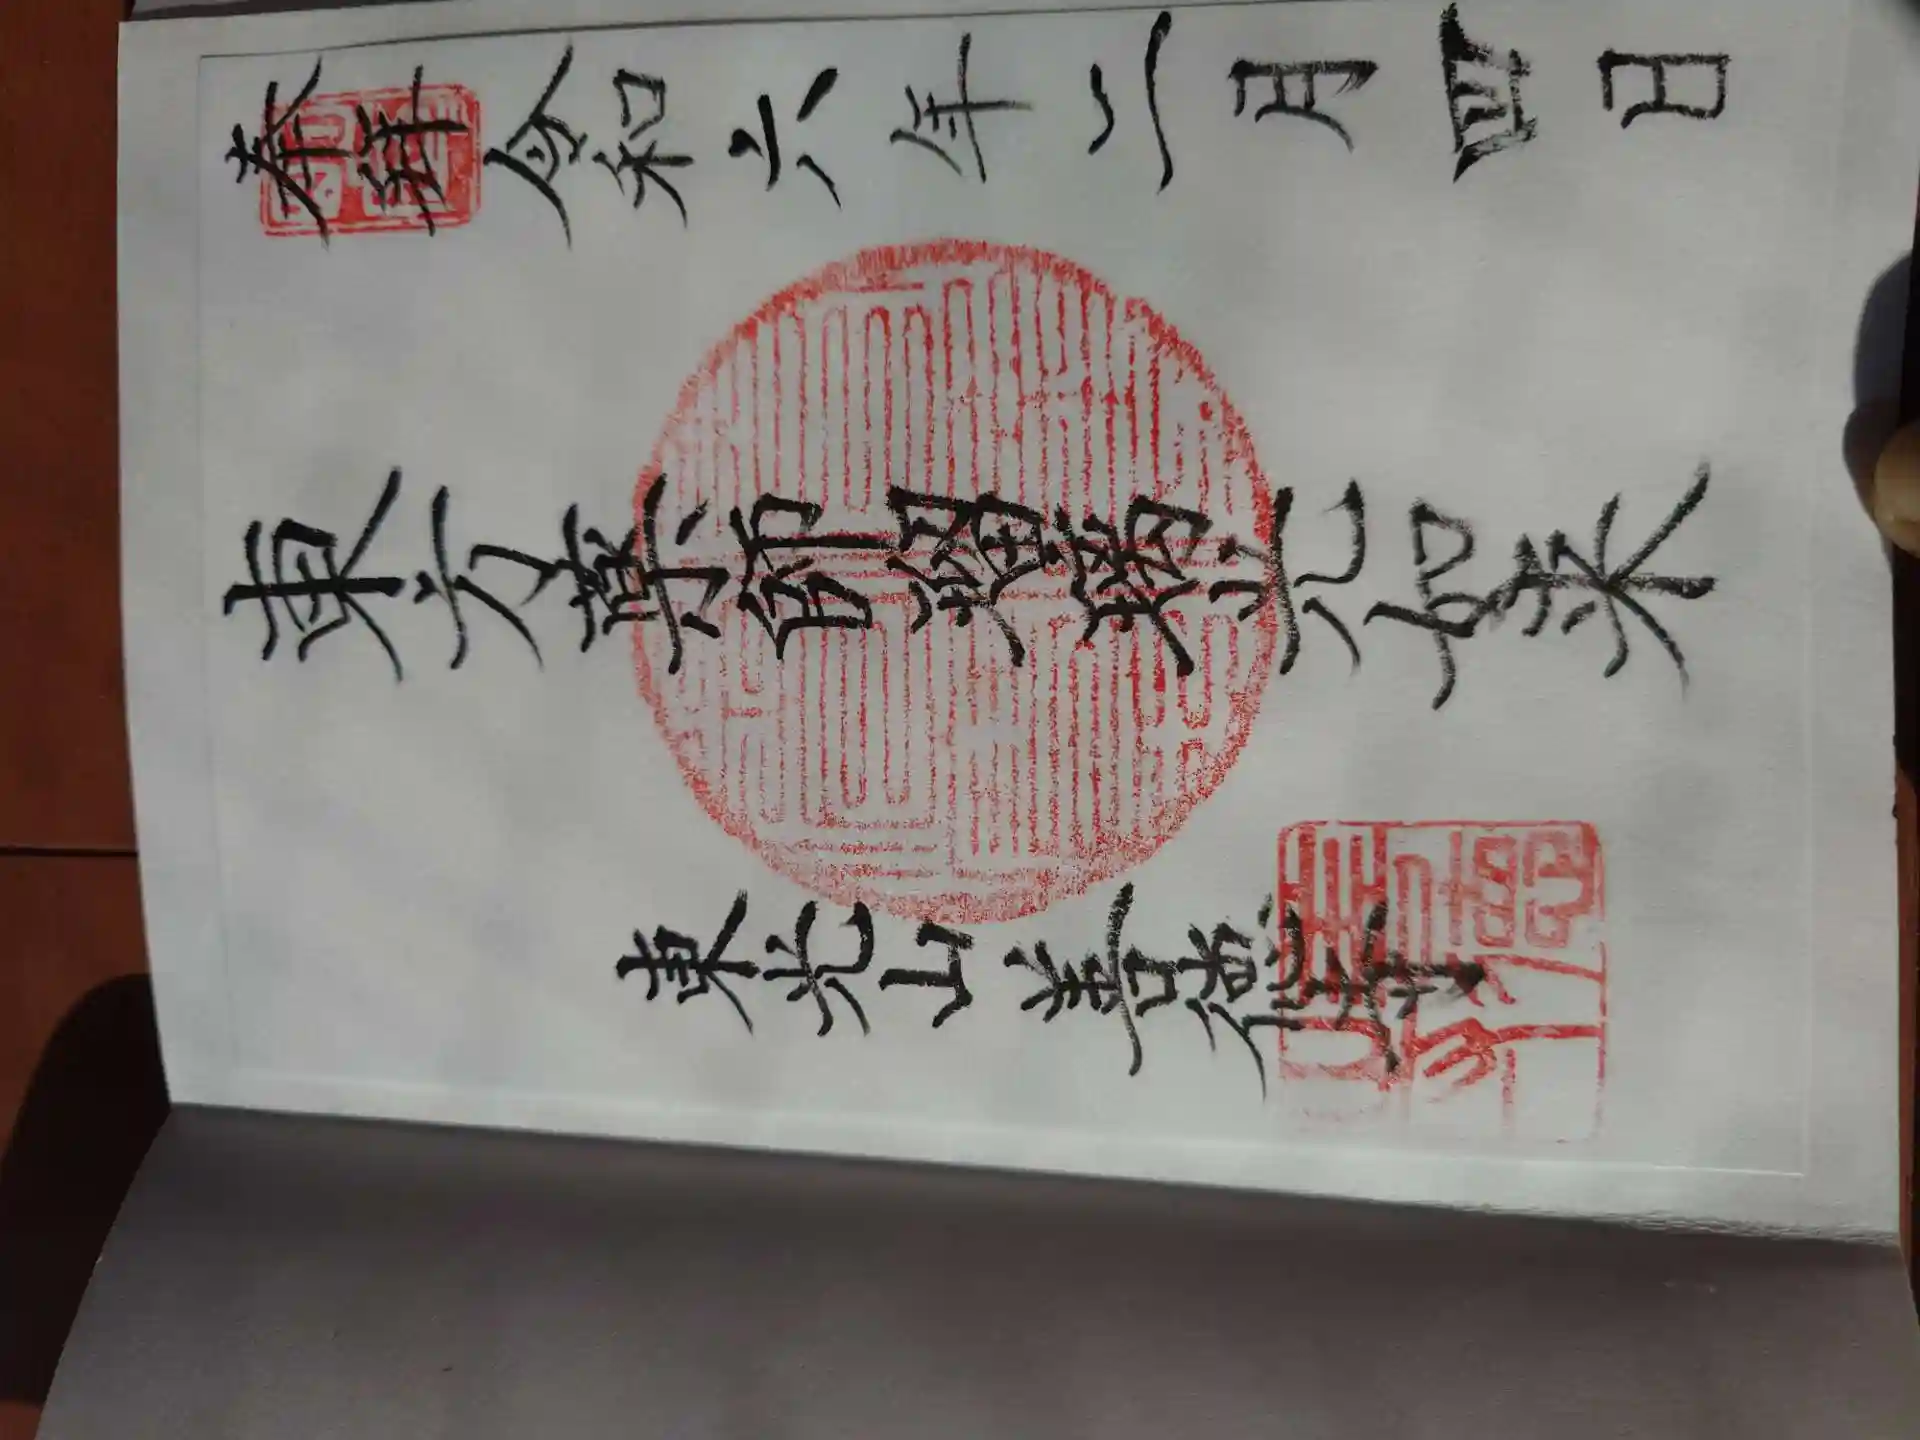 奉拝 令和六年二月四日
東方薬師瑠璃光如来
東光山善徳寺